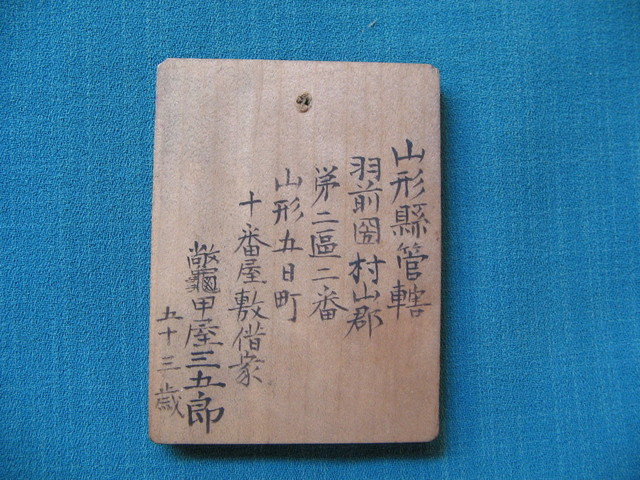 山形縣管轄
羽前圀村山郡
第二區二番
山形五日町
十番屋敷借家
龜甲屋三五郎
五十三歳